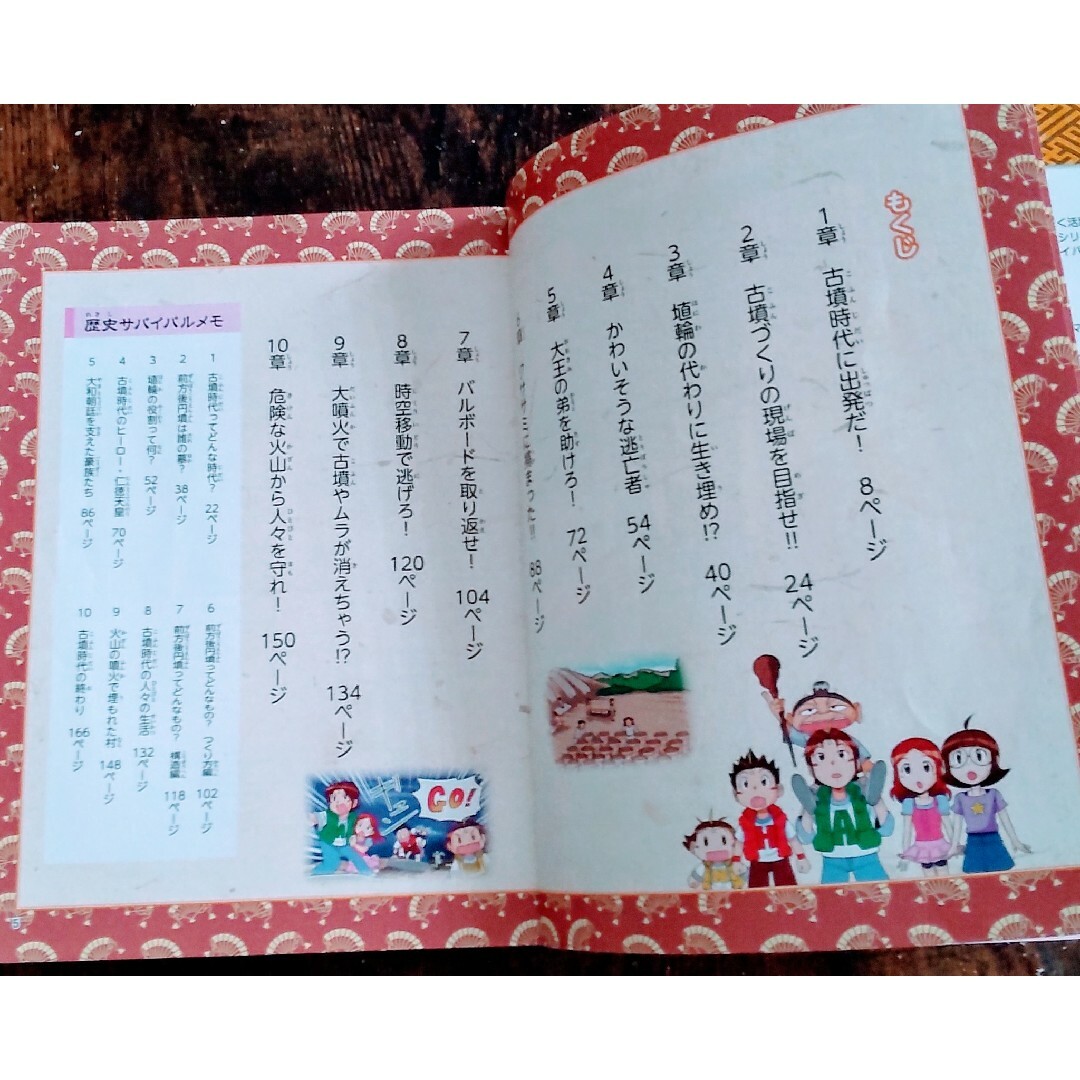 もくじ
1章 古墳時代に出発だ! 8ページ
2章 古墳づくりの現場を目指せ!! 24ページ
3章 埴輪の代わりに生き埋め!? 40ページ
4章 かわいそうな逃亡者 54ページ
5章 大王の弟を助けろ! 72ページ
88ページ
7章 バルボードを取り返せ! 104ページ
8章 時空移動で逃げろ! 120ページ
9章 大噴火で古墳やムラが消えちゃう!? 134ページ
10章 危険な火山から人々を守れ! 150ページ
歴史サバイバルメモ
1 古墳時代ってどんな時代? 22ページ
2 前方後円墳は誰の墓? 38ページ
3 埴輪の役割って何? 52ページ
4 古墳時代のヒーロー・仁徳天皇 70ページ
5 大和朝廷を支えた豪族たち 86ページ
6 前方後円墳ってどんなもの? つくり方編 102ページ
7 前方後円墳ってどんなもの? 構造編 118ページ
8 古墳時代の人々の生活 132ページ
9 火山の噴火で埋もれた村 148ページ
10 古墳時代の終わり 166ページ
GO!
H
A
5
く活
シリ
イバ